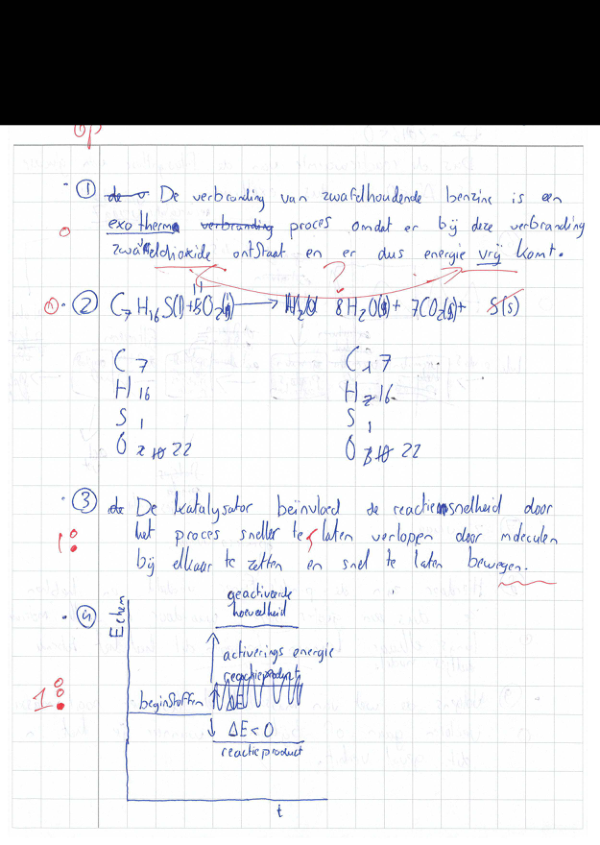 op
① De verbranding van zwafelhoudende benzine is een
exotherme verbranding proces omdat er bij deze verbranding
zwafeldioxide ontstaat en er dus energie vrij komt.
?
② C₇H₁₆S(l)+ O₂(g) → 8H₂O(g)+ 7CO₂(g)+ S(s)
C 7 C 7
H 16 H 16
S 1 S 1
O 22 O 22
③ De katalysator beïnvloed de reactiesnelheid door
het proces sneller te laten verlopen door moleculen
bij elkaar te zetten en snel te laten bewegen.
④ Echem
geactiveerde
hoeveelheid
activerings energie
reactieproduct
beginstoffen ΔE
ΔE<0
reactieproduct
t